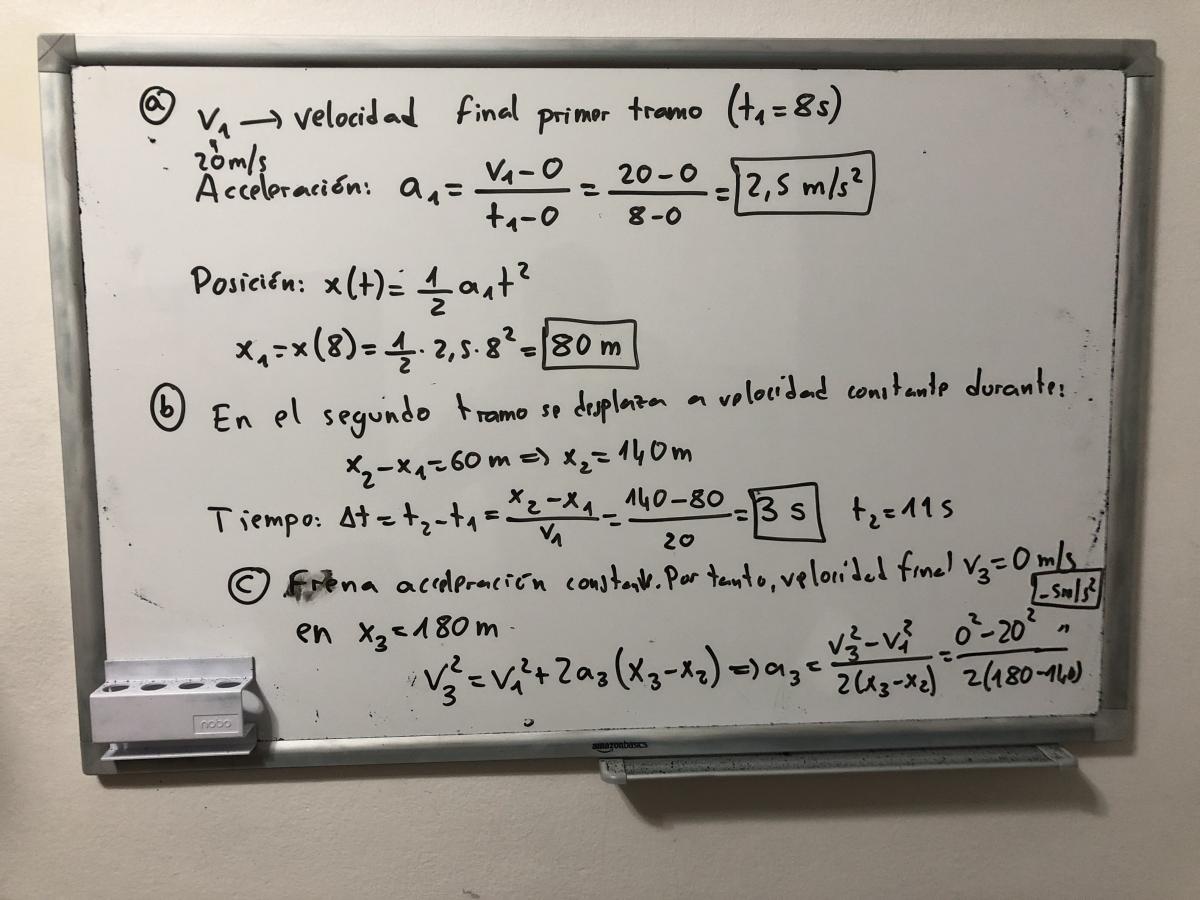 ⓐ V₁ → velocidad final primer tramo (t₁ = 8s)
20 m/s
Acceleración: a₁ = (V₁ - 0)/(t₁ - 0) = (20 - 0)/(8 - 0) = 2,5 m/s²
Posición: x(t) = 1/2 a₁t²
x₁ = x(8) = 1/2 · 2,5 · 8² = 80 m
ⓑ En el segundo tramo se desplaza a velocidad constante durante:
x₂ - x₁ = 60 m => x₂ = 140 m
Tiempo: Δt = t₂ - t₁ = (x₂ - x₁)/V₁ = (140 - 80)/20 = 3 s t₂ = 11 s
ⓒ Frena acceleración constante. Por tanto, velocidad final V₃ = 0 m/s
en x₃ = 180 m
V₃² = V₁² + 2a₃(x₃ - x₂) => a₃ = (V₃² - V₁²)/(2(x₃ - x₂)) = (0² - 20²)/(2(180 - 140)) = -5 m/s²
nobo
amazonbasics